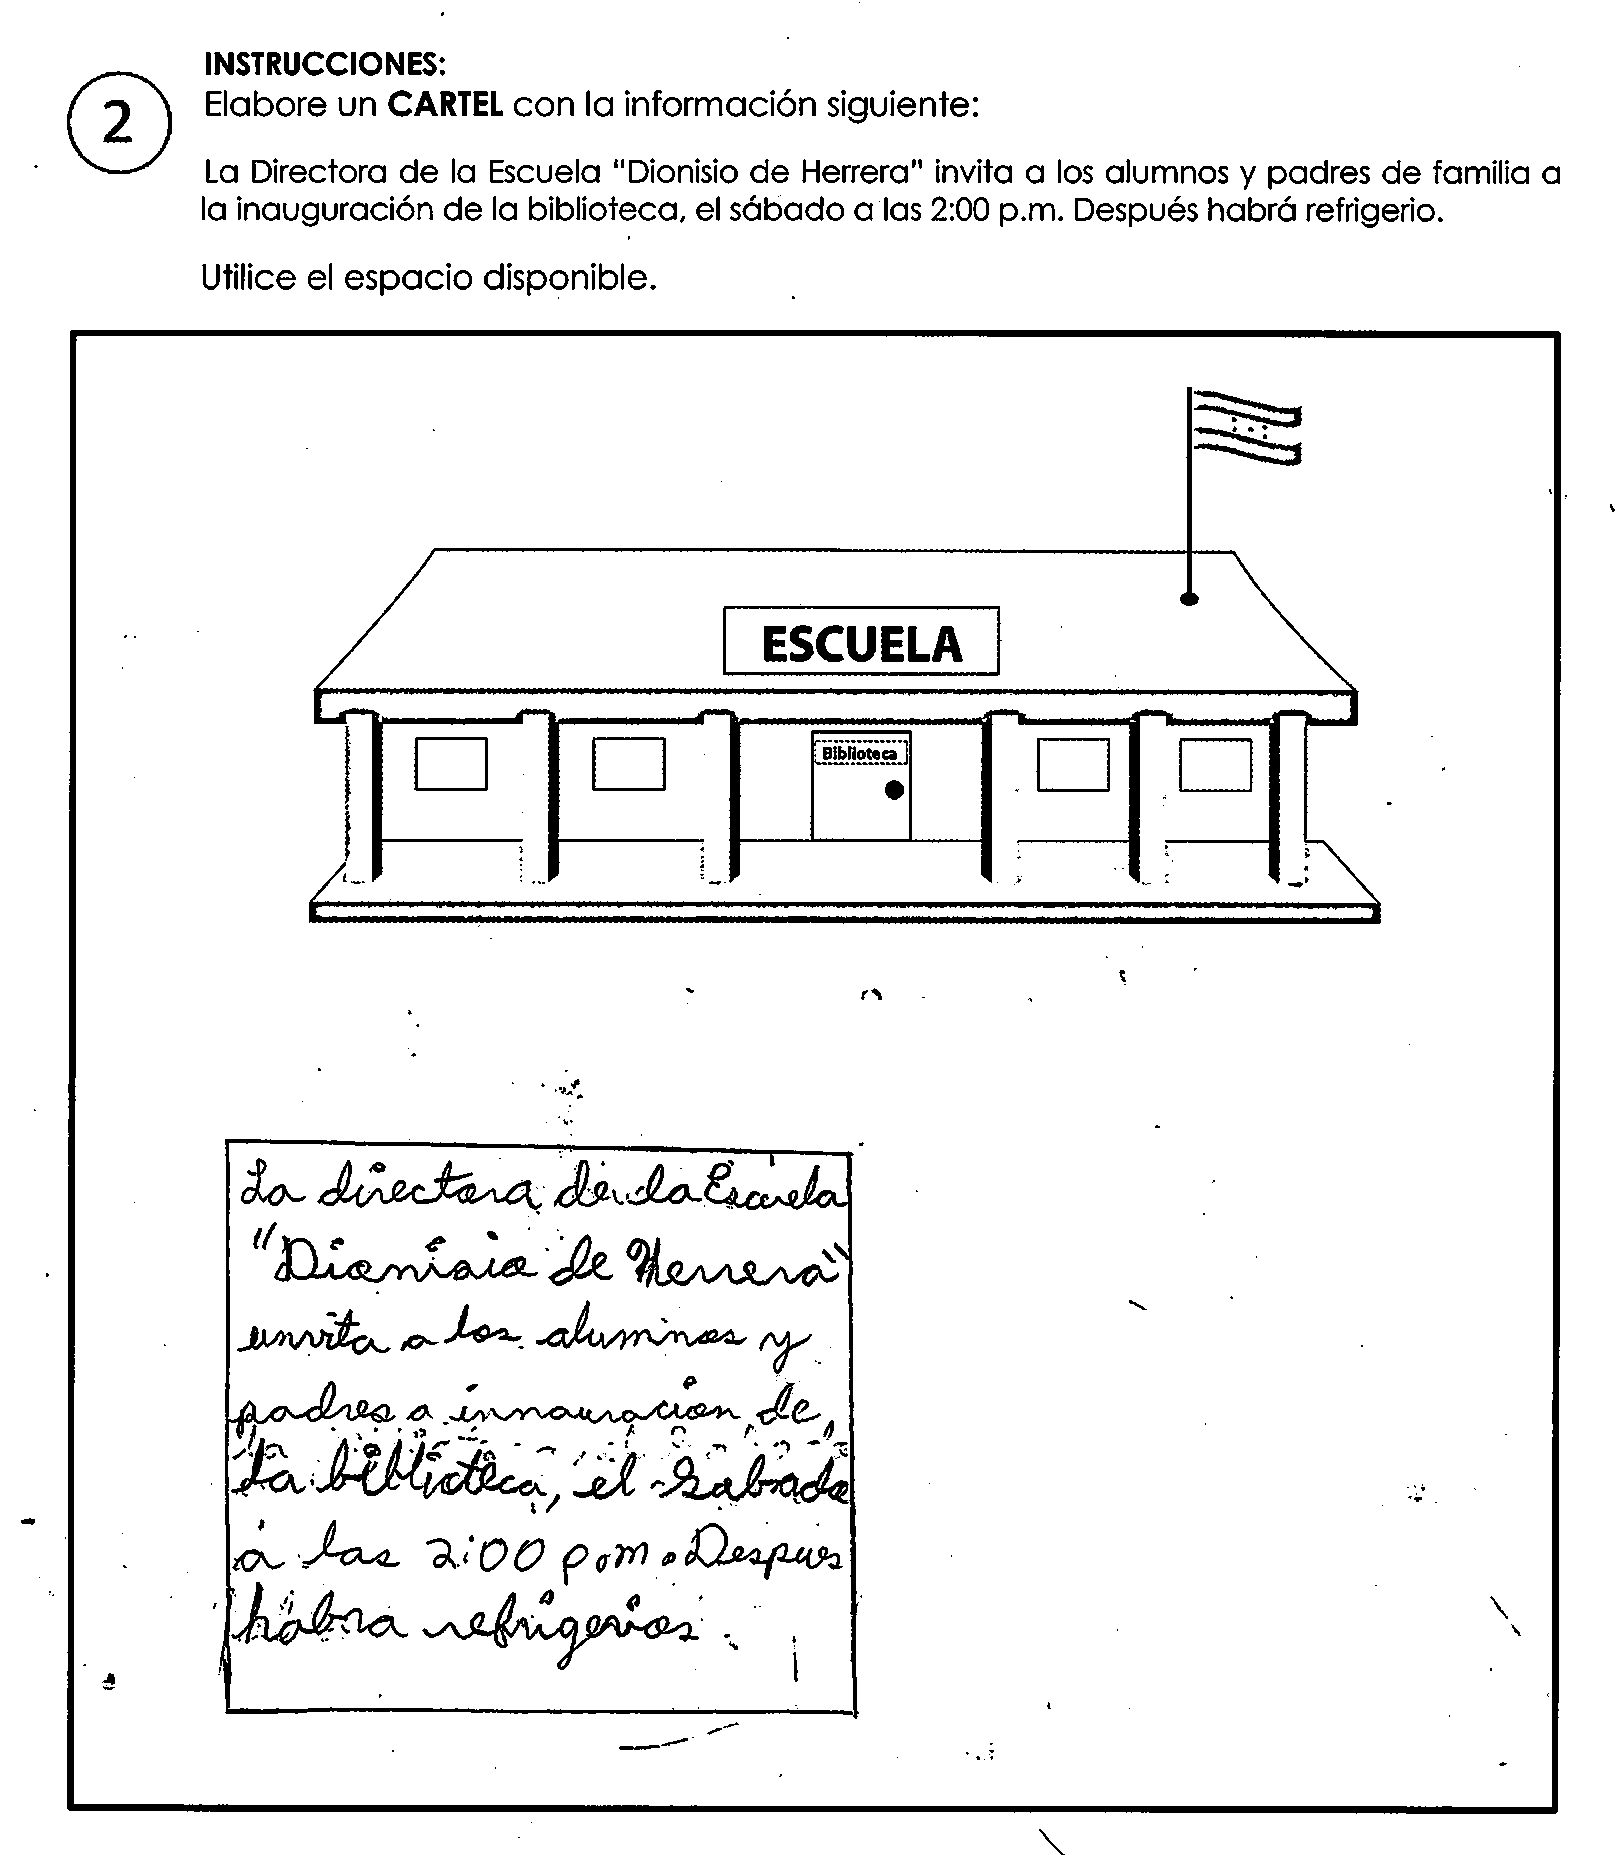 INSTRUCCIONES:
2
Elabore un CARTEL con la información siguiente:
La Directora de la Escuela "Dionisio de Herrera" invita a los alumnos y padres de familia a
la inauguración de la biblioteca, el sábado a las 2:00 p.m. Después habrá refrigerio.
Utilice el espacio disponible.
ESCUELA
Biblioteca
La directora de la Escuela
"Dionisio de Herrera"
invita a los aluminos y
padres a innauracion de
La biblioteca, el Sabado
a las 2:00 p.m. Despues
habra refrigerios